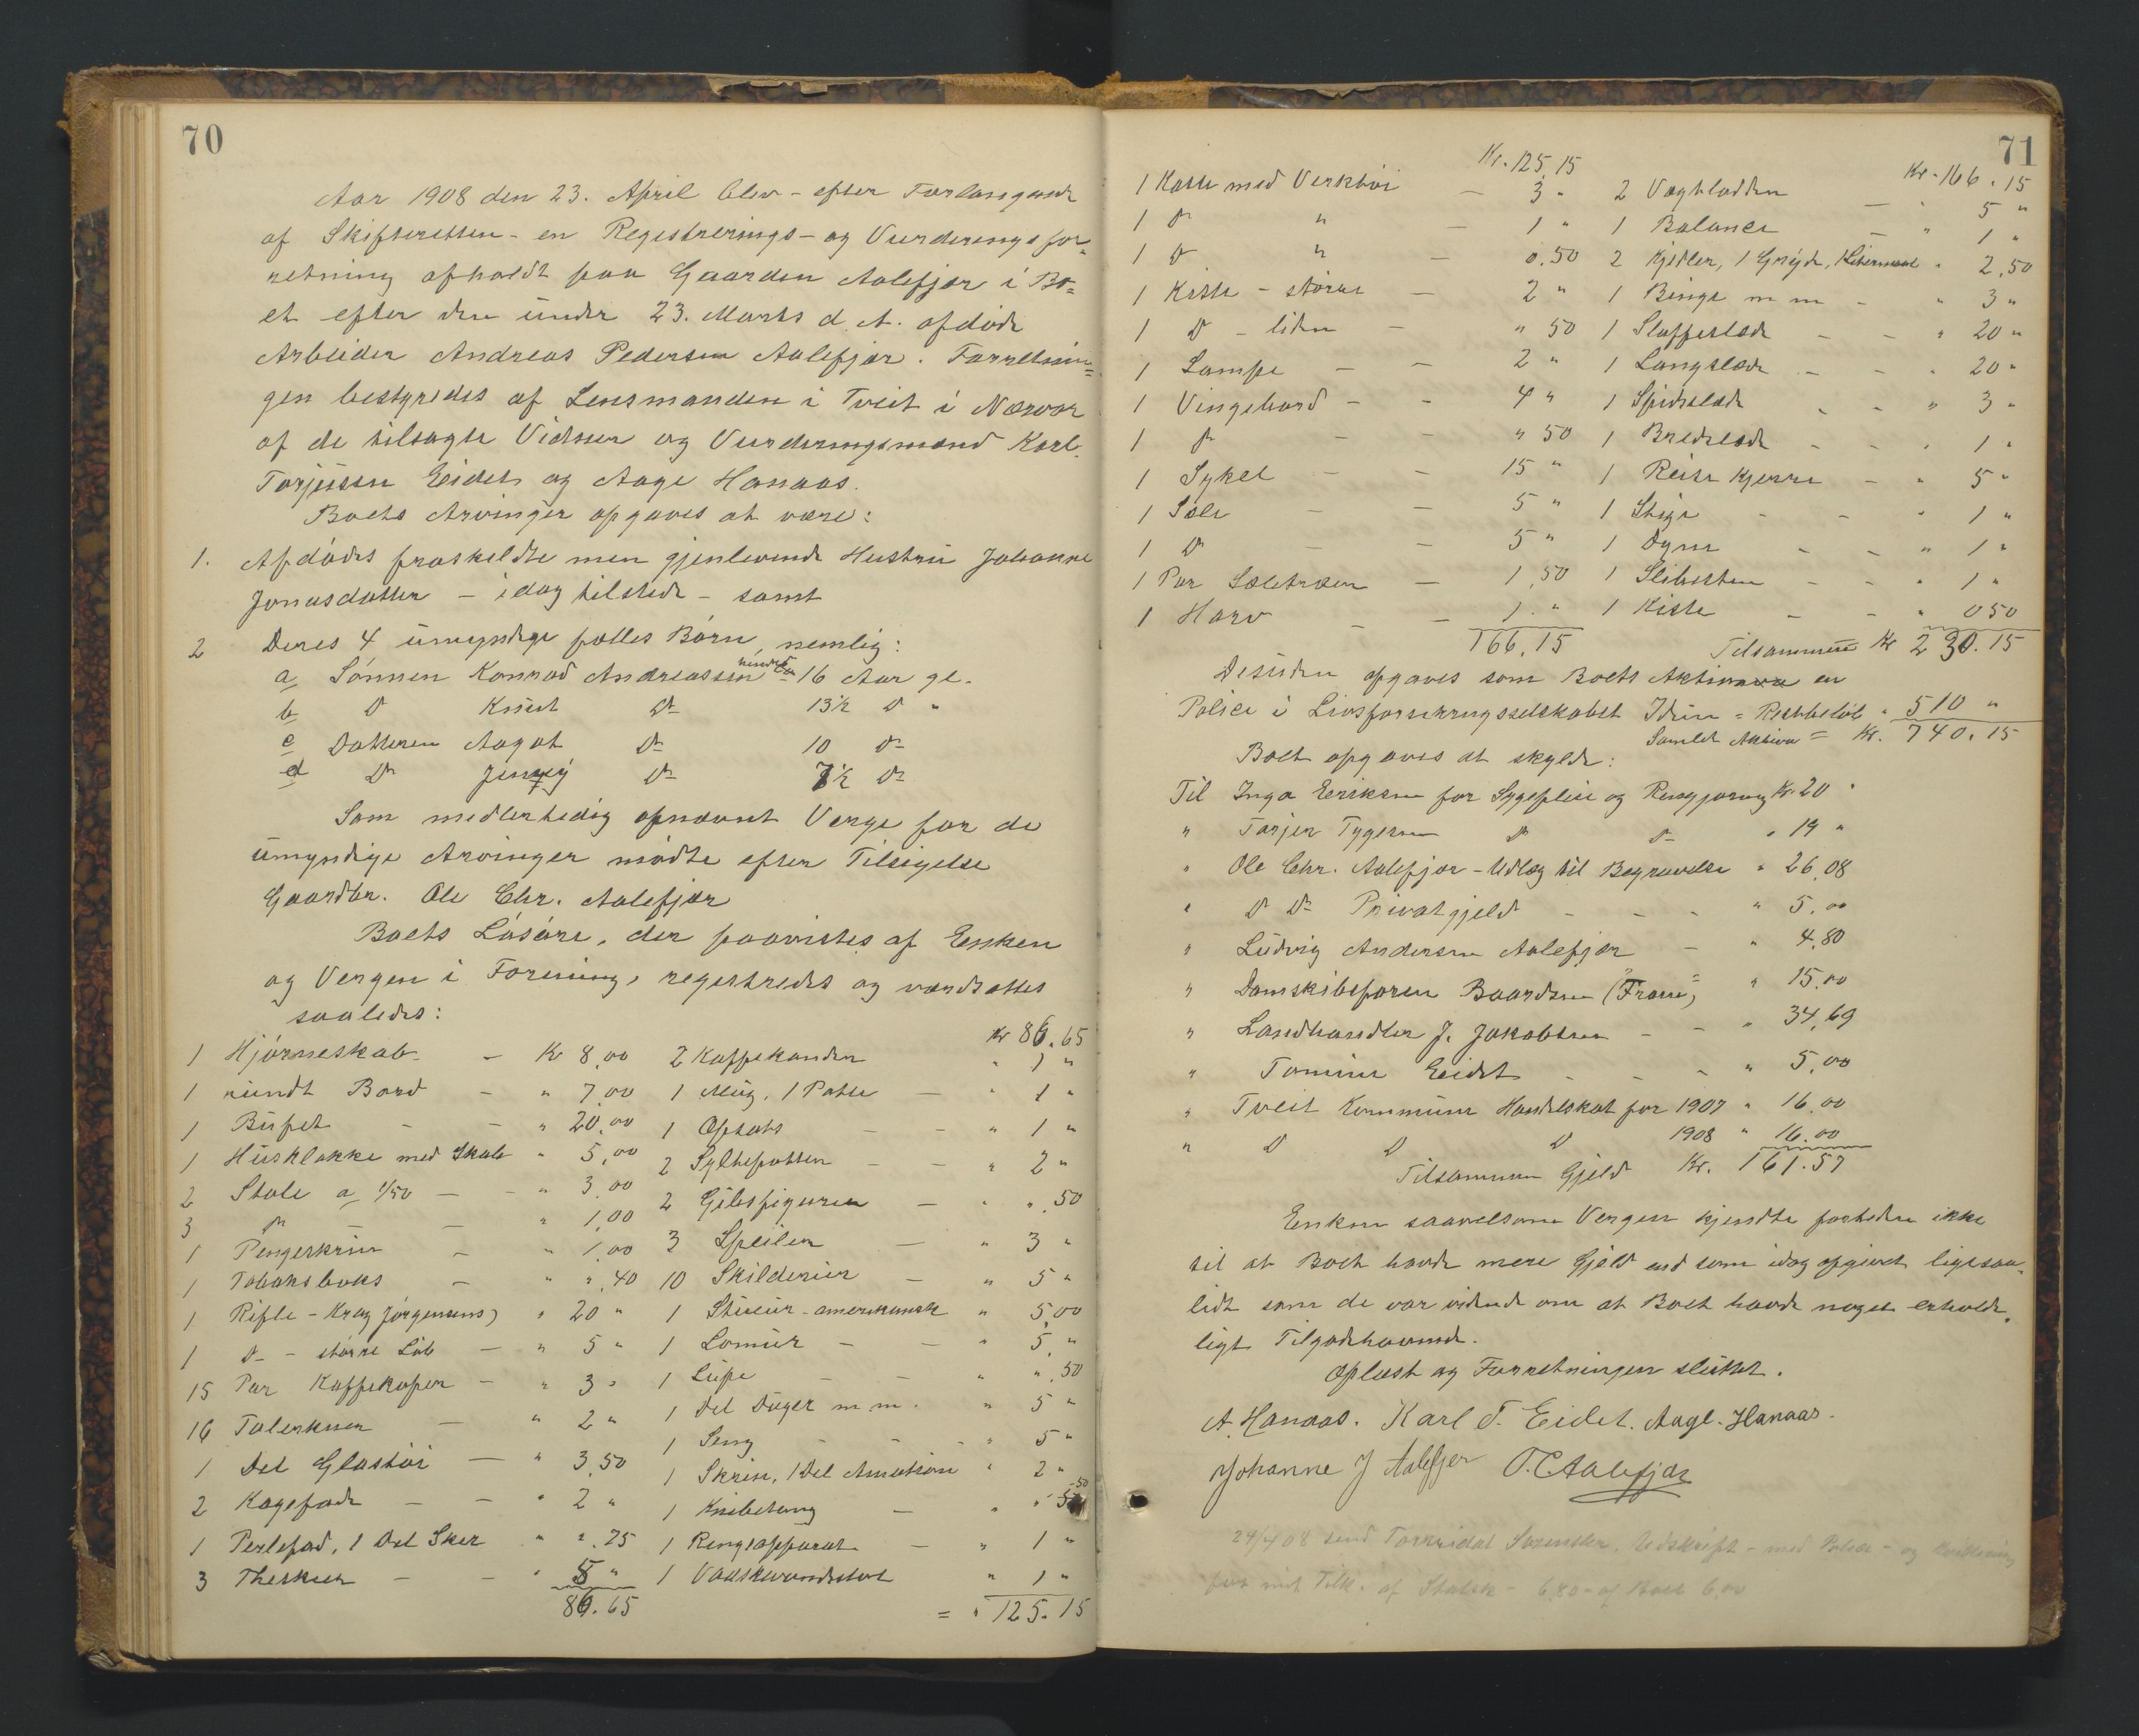 70
Aar 1908 den 23. April blev - efter Forlangende
af Skifteretten - en Registrerings- og Vurderingsfor-
retning afholdt paa Gaarden Aalefjær i Bo-
et efter den under 23. Marts d. A. afdøde
Arbeider Andreas Pedersen Aalefjær. Forretnin-
gen bestyredes af Lensmanden i Tveit i Nærvær
af de tilsagte Vidner og Vurderingsmænd Karl
Torjussen Eidet og Aage Hanaas.
Boets Arvinger opgaves at være:
1. Afdødes fraskildte men gjenlevende Hustru Johanne
Jonasdatter - idag tilstede - samt
2 Deres 4 umyndige fælles Børn, nemlig:
a Sønnen Konrad Andreassen 16 Aar gl.
b D Knut Do 13½ D "
c Datteren Aagot Do 10 Do
d Do Jenny Do 7½ Do
Som midlertidig opnævnt Verge for de
umyndige Arvinger mødte efter Tilsigelse
Gaardbr. Ole Chr. Aalefjær
Boets Løsøre, der paavistes af Enken
og Vergen i Forening, registredes og værdsattes
saaledes:
1 Hjørneskab - Kr 8,00
1 rundt Bord - " 7,00
1 Büfet - - " 20,00
1 Husklokke med Skab " 5,00
2 Stole a 1/50 - - " 3,00
3 Do - - " 1,00
1 Pengeskrin - " 1,00
1 Tobaksboks - " ",40
1 Rifle - Krag Jørgensens) " 20 "
1 Do - større Løb - " 5 "
15 Par Kaffekoper - " 3 "
16 Talerkner - " 2 "
1 Del Glastøi - " 3,50
2 Kagefade - - " 2 "
1 Perlefad, 1 Del Sker " ".75
3 Theskeer - - " 5 "
86.65
Kr 86.65
2 Kaffekander " 1 "
1 Mug, 1 Potte - " 1 "
1 Opsats - - " 1 "
2 Syltepotter - - " 2 "
2 Gibsfigurer - " ".50
3 Speiler - " 3 "
10 Skilderier - " 5 "
1 Stueur - amerikansk " 5,00
1 Lomür - - " 5 "
1 Lupe - - " ".50
1 Del Duger m m. " 5 "
1 Seng - - - " 5 "
1 Skrin, 1 Del Amution " 2 "
1 Knibetang - " " 50
1 Ringeapparat - " 1 "
1 Vaskevandsstol " 1 "
= " 125.15
71
Kr. 125.15
1 Kasse med Verktøi - 3 "
1 Do " - 1 "
1 Do " - 0.50
1 Kiste - større - 2 "
1 D - liden - " 50
1 Lampe - - 2 "
1 Vingebord - - 4 "
1 Do - - " 50
1 Sykel - - 15 "
1 Sæle - - 5 "
1 Do - - 5 "
1 Par Sæletræer - 1,50
1 Harv - - 1. "
166.15
Kr. 166.15
2 Vægtlodder - " 5 "
1 Balance - " 1 "
2 Kjedler, 1 Gryde, 1 Litermaal " 2,50
1 Binge m m - " 3 "
1 Sluffeslæde - - " 20 "
1 Langslæde - - " 20 "
1 Spidsslæde - - " 3 "
1 Bredslæde - - " 1 "
1 Reise Kjerre - " 5 "
1 Stige - - " 1 "
1 Dyne - - " 1 "
1 Slibesten - - " 1 "
1 Kiste - - " 0 50
Tilsammen Kr 230.15
Desuden opgaves som Boets Aktiva en
Police i Livsforsikringsselskabet Idun = Restbeløb " 510 "
Samlet Aktiva = Kr. 740.15
Boet opgaves at skylde:
Til Inga Eriksen for Sygepleie og Rengjøring Kr. 20 "
" Torjer Tygesen Do Do " 19 "
" Ole Chr. Aalefjær - Udlæg til Begravelse " 26,08
" D Do Privatgjeld - - - " 5,00
" Ludvig Andersen Aalefjær - " 4,80
" Damskibsfører Baardsen ("Fram") " 15,00
" Landhandler J. Jakobsen - - " 34,69
" Tomine Eidet - - - " 5,00
" Tveit Kommune Handelskat for 1907 " 16,00
" D D D 1908 " 16.00
Tilsammen Gjeld Kr. 161.57
Enken saavelsom Vergen kjendte forheden ikke
til at Boet havde mere Gjeld end som idag opgivet ligesaa-
lidt som de var vidende om at Boet havde noget erholde-
ligt Tilgodehavende.
Oplæst og Forretningen sluttet.
A. Hanaas. Karl T. Eidet. Aage Hanaas.
Johanne J Aalefjær O. C. Aalefjær
24/4 08 send Torridal Sorenskr. Udskrift - med Police - og